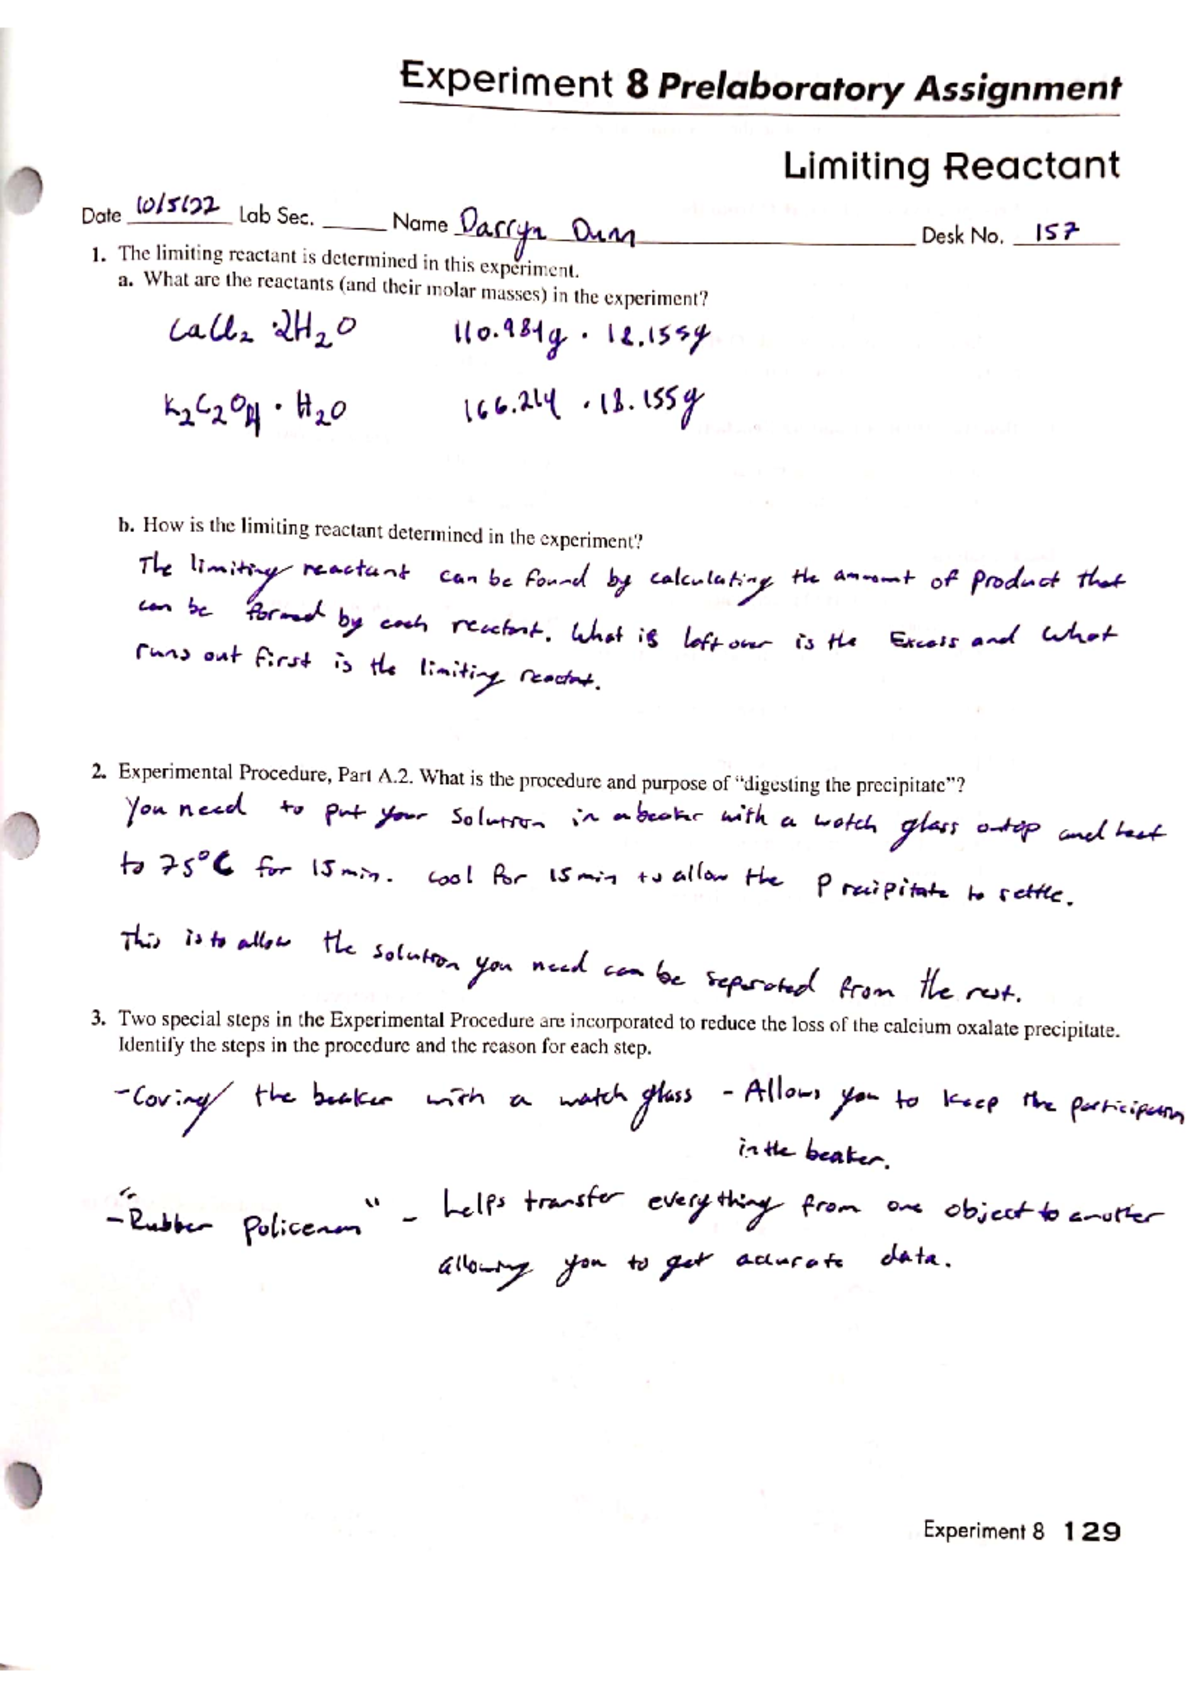 Experiment 8 Prelaboratory Assignment
Limiting Reactant
Date 10/5/22 Lab Sec. Name Darryn Dunn Desk No. 157
1. The limiting reactant is determined in this experiment.
a. What are the reactants (and their molar masses) in the experiment?
CaCl₂ ·2H₂O 110.984g · 18.155g
K₂C₂O₄ · H₂O 166.214 · 18.155g
b. How is the limiting reactant determined in the experiment?
The limiting reactant can be found by calculating the amount of product that
can be formed by each reactant. What is left over is the Excess and what
runs out first is the limiting reactant.
2. Experimental Procedure, Part A.2. What is the procedure and purpose of "digesting the precipitate"?
You need to put your solution in a beaker with a watch glass ontop and heat
to 75°C for 15 min. cool for 15 min to allow the Precipitate to settle.
This is to allow the solution you need can be seperated from the rest.
3. Two special steps in the Experimental Procedure are incorporated to reduce the loss of the calcium oxalate precipitate.
Identify the steps in the procedure and the reason for each step.
- Coving the beaker with a watch glass - Allows you to keep the
in the beaker.
- "Rubber Policeman" - helps transfer everything from one object to another
allowing you to get accurate data.
Experiment 8 129